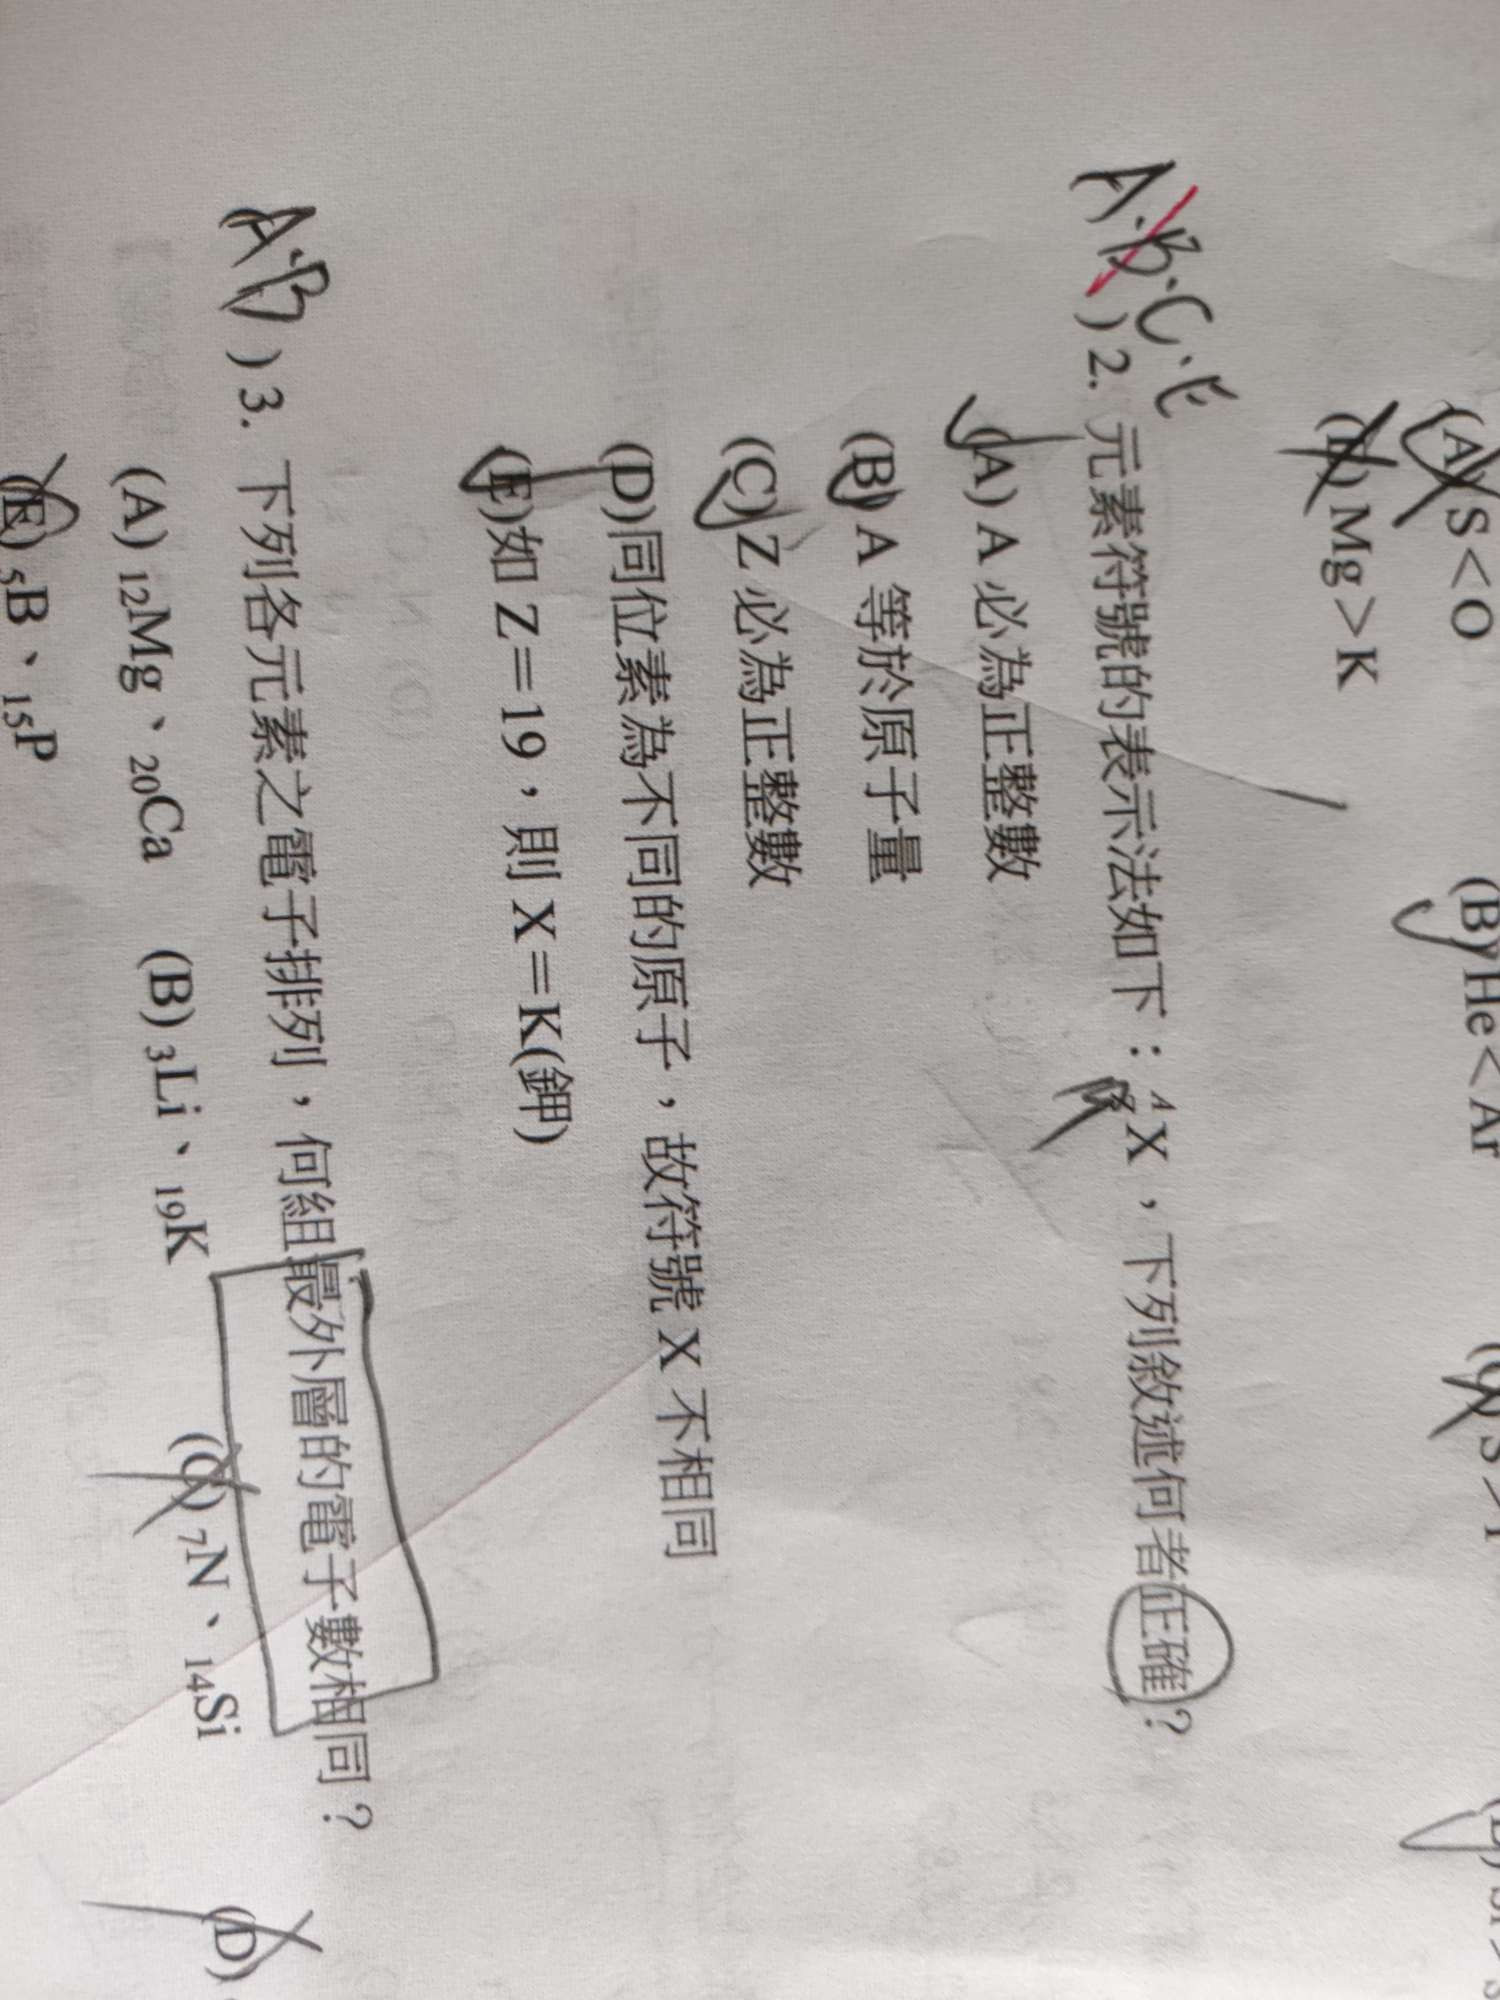 (A) S＜O (B) He＜Ar
Mg＞K
A.B.C.E ) 2. 元素符號的表示法如下：ᴬX，下列敘述何者正確？
(A) A 必為正整數
(B) A 等於原子量
(C) Z 必為正整數
(D)同位素為不同的原子，故符號 X 不相同
(E)如 Z＝19，則 X＝K(鉀)
A.B ) 3. 下列各元素之電子排列，何組最外層的電子數相同？
(A) ₁₂Mg、₂₀Ca (B) ₃Li、₁₉K (C) ₇N、₁₄Si (D)
(E) ₅B、₁₅P